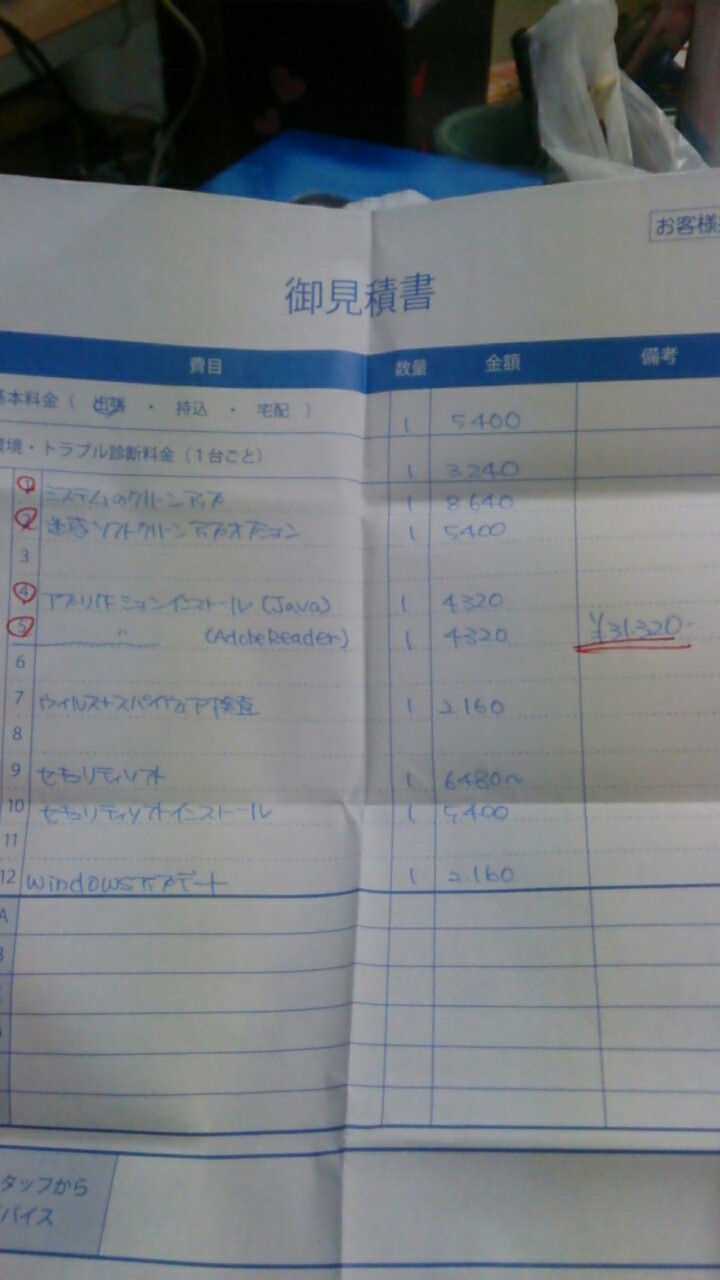 お客様
御見積書
費目 数量 金額 備考
基本料金( 出張 ・ 持込 ・ 宅配 ) 1 5400
環境・トラブル診断料金(1台ごと) 1 3240
1 システムのクリーンアップ 1 8640
2 迷惑ソフトクリーンアップオプション 1 5400
3
4 アプリケーションインストール (Java) 1 4320
5 〃 (AdobeReader) 1 4320 ¥31.320-
6
7 ウィルス+スパイウェア検査 1 2.160
8
9 セキュリティソフト 1 6480~
10 セキュリティソフトインストール 1 5,400
11
12 Windowsアップデート 1 2.160
A
タッフから
バイス